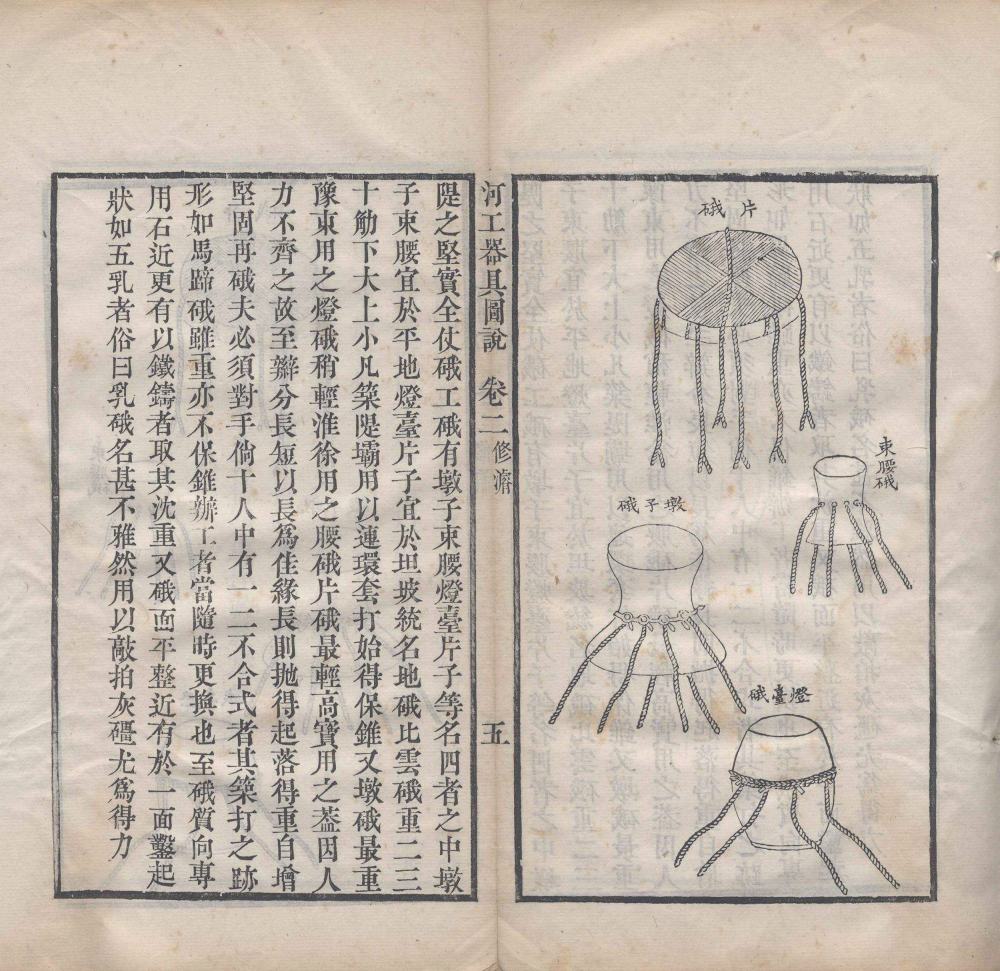 片硪
束腰硪
墩子硪
燈臺硪
河工器具圖說 卷二 修濬 五
隄之堅實全仗硪工硪有墩子束腰燈臺片子等名四者之中墩
子束腰宜於平地燈臺片子宜於坦坡統名地硪比雲硪重二三
十觔下大上小凡築隄壩用以連環套打始得保錐又墩硪最重
豫東用之燈硪稍輕淮徐用之腰硪片硪最輕高寶用之葢因人
力不齊之故至辮分長短以長爲佳緣長則拋得起落得重自增
堅固再硪夫必須對手倘十人中有一二不合式者其築打之跡
形如馬蹄硪雖重亦不保錐辦工者當隨時更換也至硪質向專
用石近更有以鐵鑄者取其沈重又硪面平整近有於一面鑿起
狀如五乳者俗曰乳硪名甚不雅然用以敲拍灰礓尤爲得力